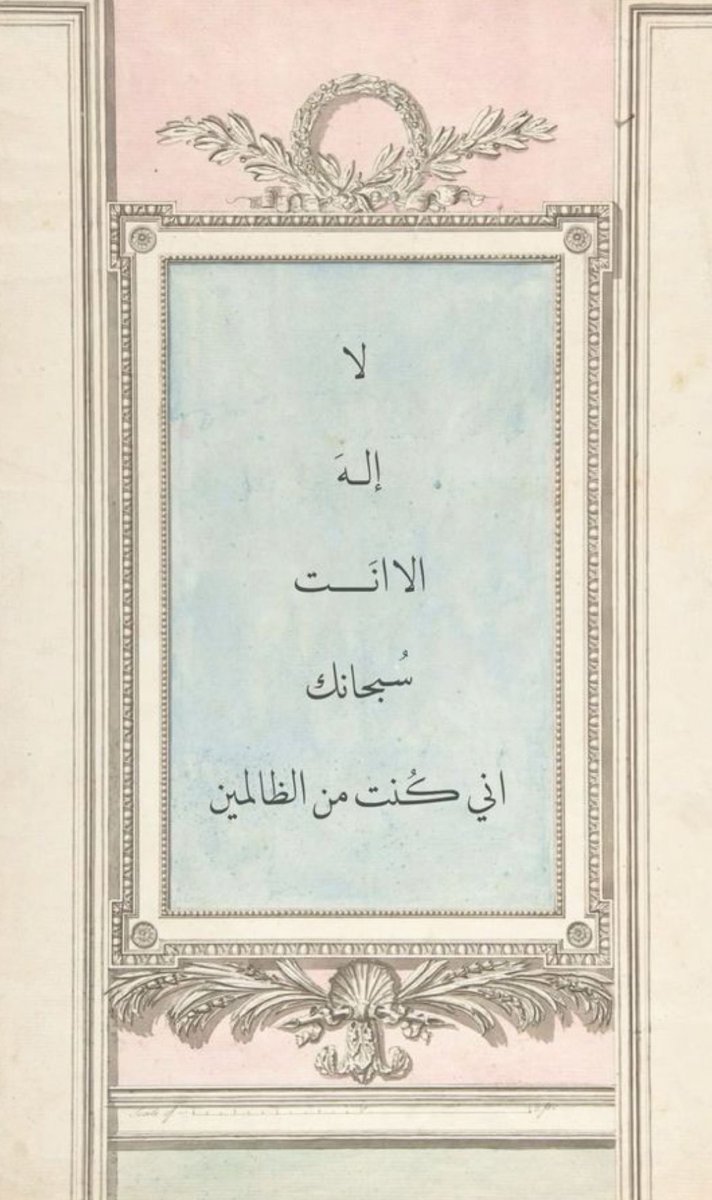 لا
إلـهَ
الا انَـــت
سُبحانك
اني كُنت من الظالمين